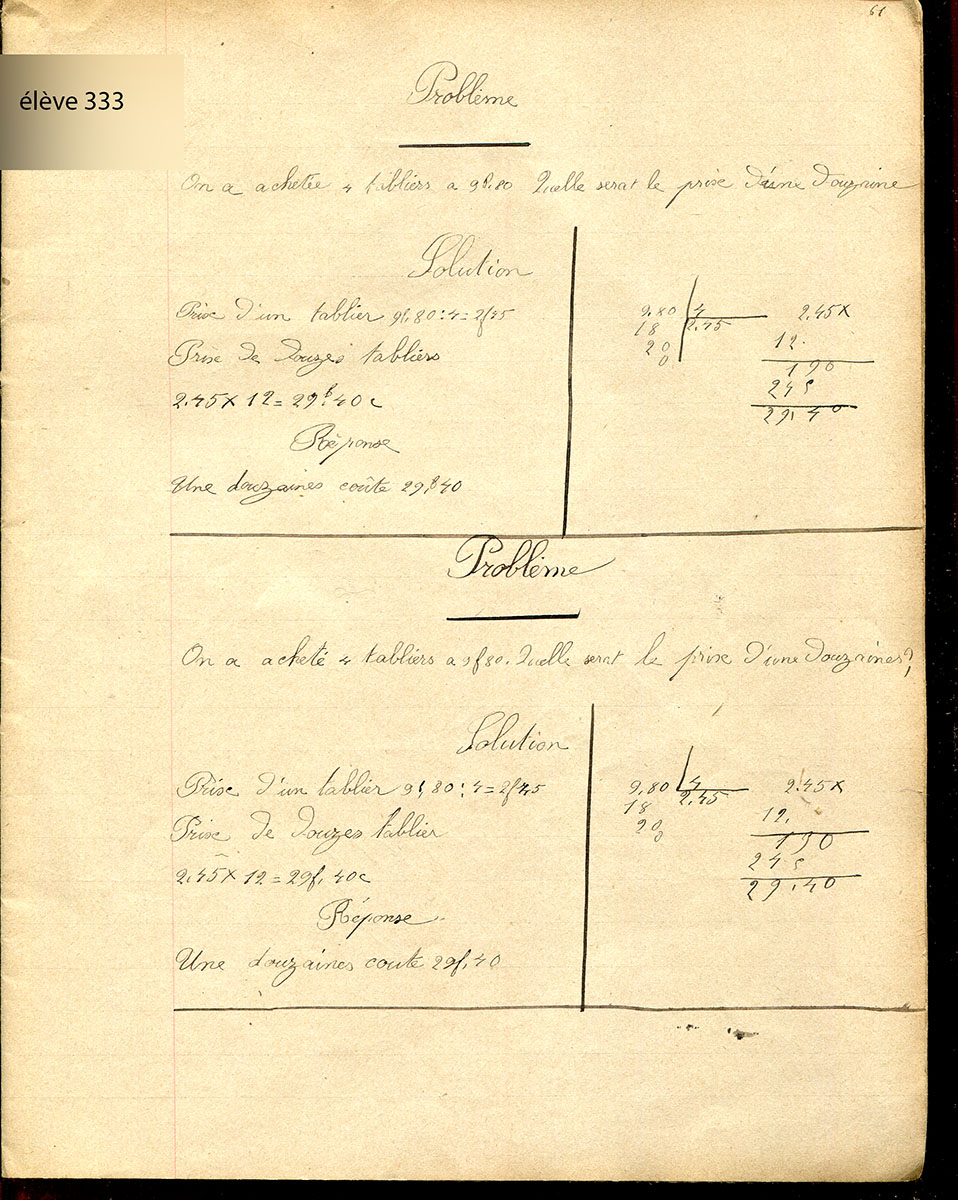 61
élève 333
Problème
On a achetée 4 tabliers a 9f.80 Quelle serat le prixe d'une Douzaine
Solution
Prixe d'un tablier 9f,80 : 4 = 2f45
Prixe de Douzes tabliers
2.45 x 12 = 29f.40c
Réponse
Une douzaines coûte 29,f40
9.80 4
18 2.45
20
0
2.45 x
12.
490
245
29.40
Problème
On a acheté 4 tabliers a 9f80. Quelle serat le prixe d'une Douzaines?
Solution
Prixe d'un tablier 9f,80 : 4 = 2f45
Prixe de Douzes tablier
2.45 x 12 = 29f. 40c
Réponse
Une douzaines coute 29f,40
9.80 4
18 2.45
20
0
2.45 x
12.
490
245
29.40